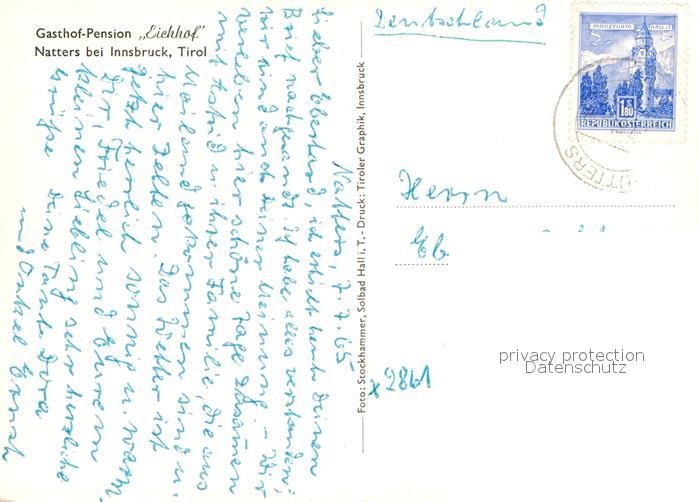 Gasthof-Pension „Eichhof"
Natters bei Innsbruck, Tirol
Natters, 7.7.65
Lieber Eberhard, ich erhielt heute Deinen
Brief nachgesandt. Ich habe alles verstanden;
wir sind auch Deiner Meinung. – Wir
verleben hier schöne Tage zusammen
mit Astrid u. ihrer Familie, die aus
Mailand gekommen sind u.
hier zelten. Das Wetter ist
jetzt herrlich sonnig u. warm.
Dir, Friedel und Eurem
kleinen Liebling sehr herzliche
Grüße Deine Tante Dora
und Onkel Ernst
Foto: Stockhammer, Solbad Hall i. T. - Druck: Tiroler Graphik, Innsbruck
Deutschland
MÜNZTURM HALL i.T.
1.80
S
REPUBLIK ÖSTERREICH
NATTERS
Herrn
Eb
x2861
privacy protection
Datenschutz